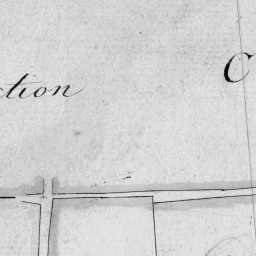 ction C